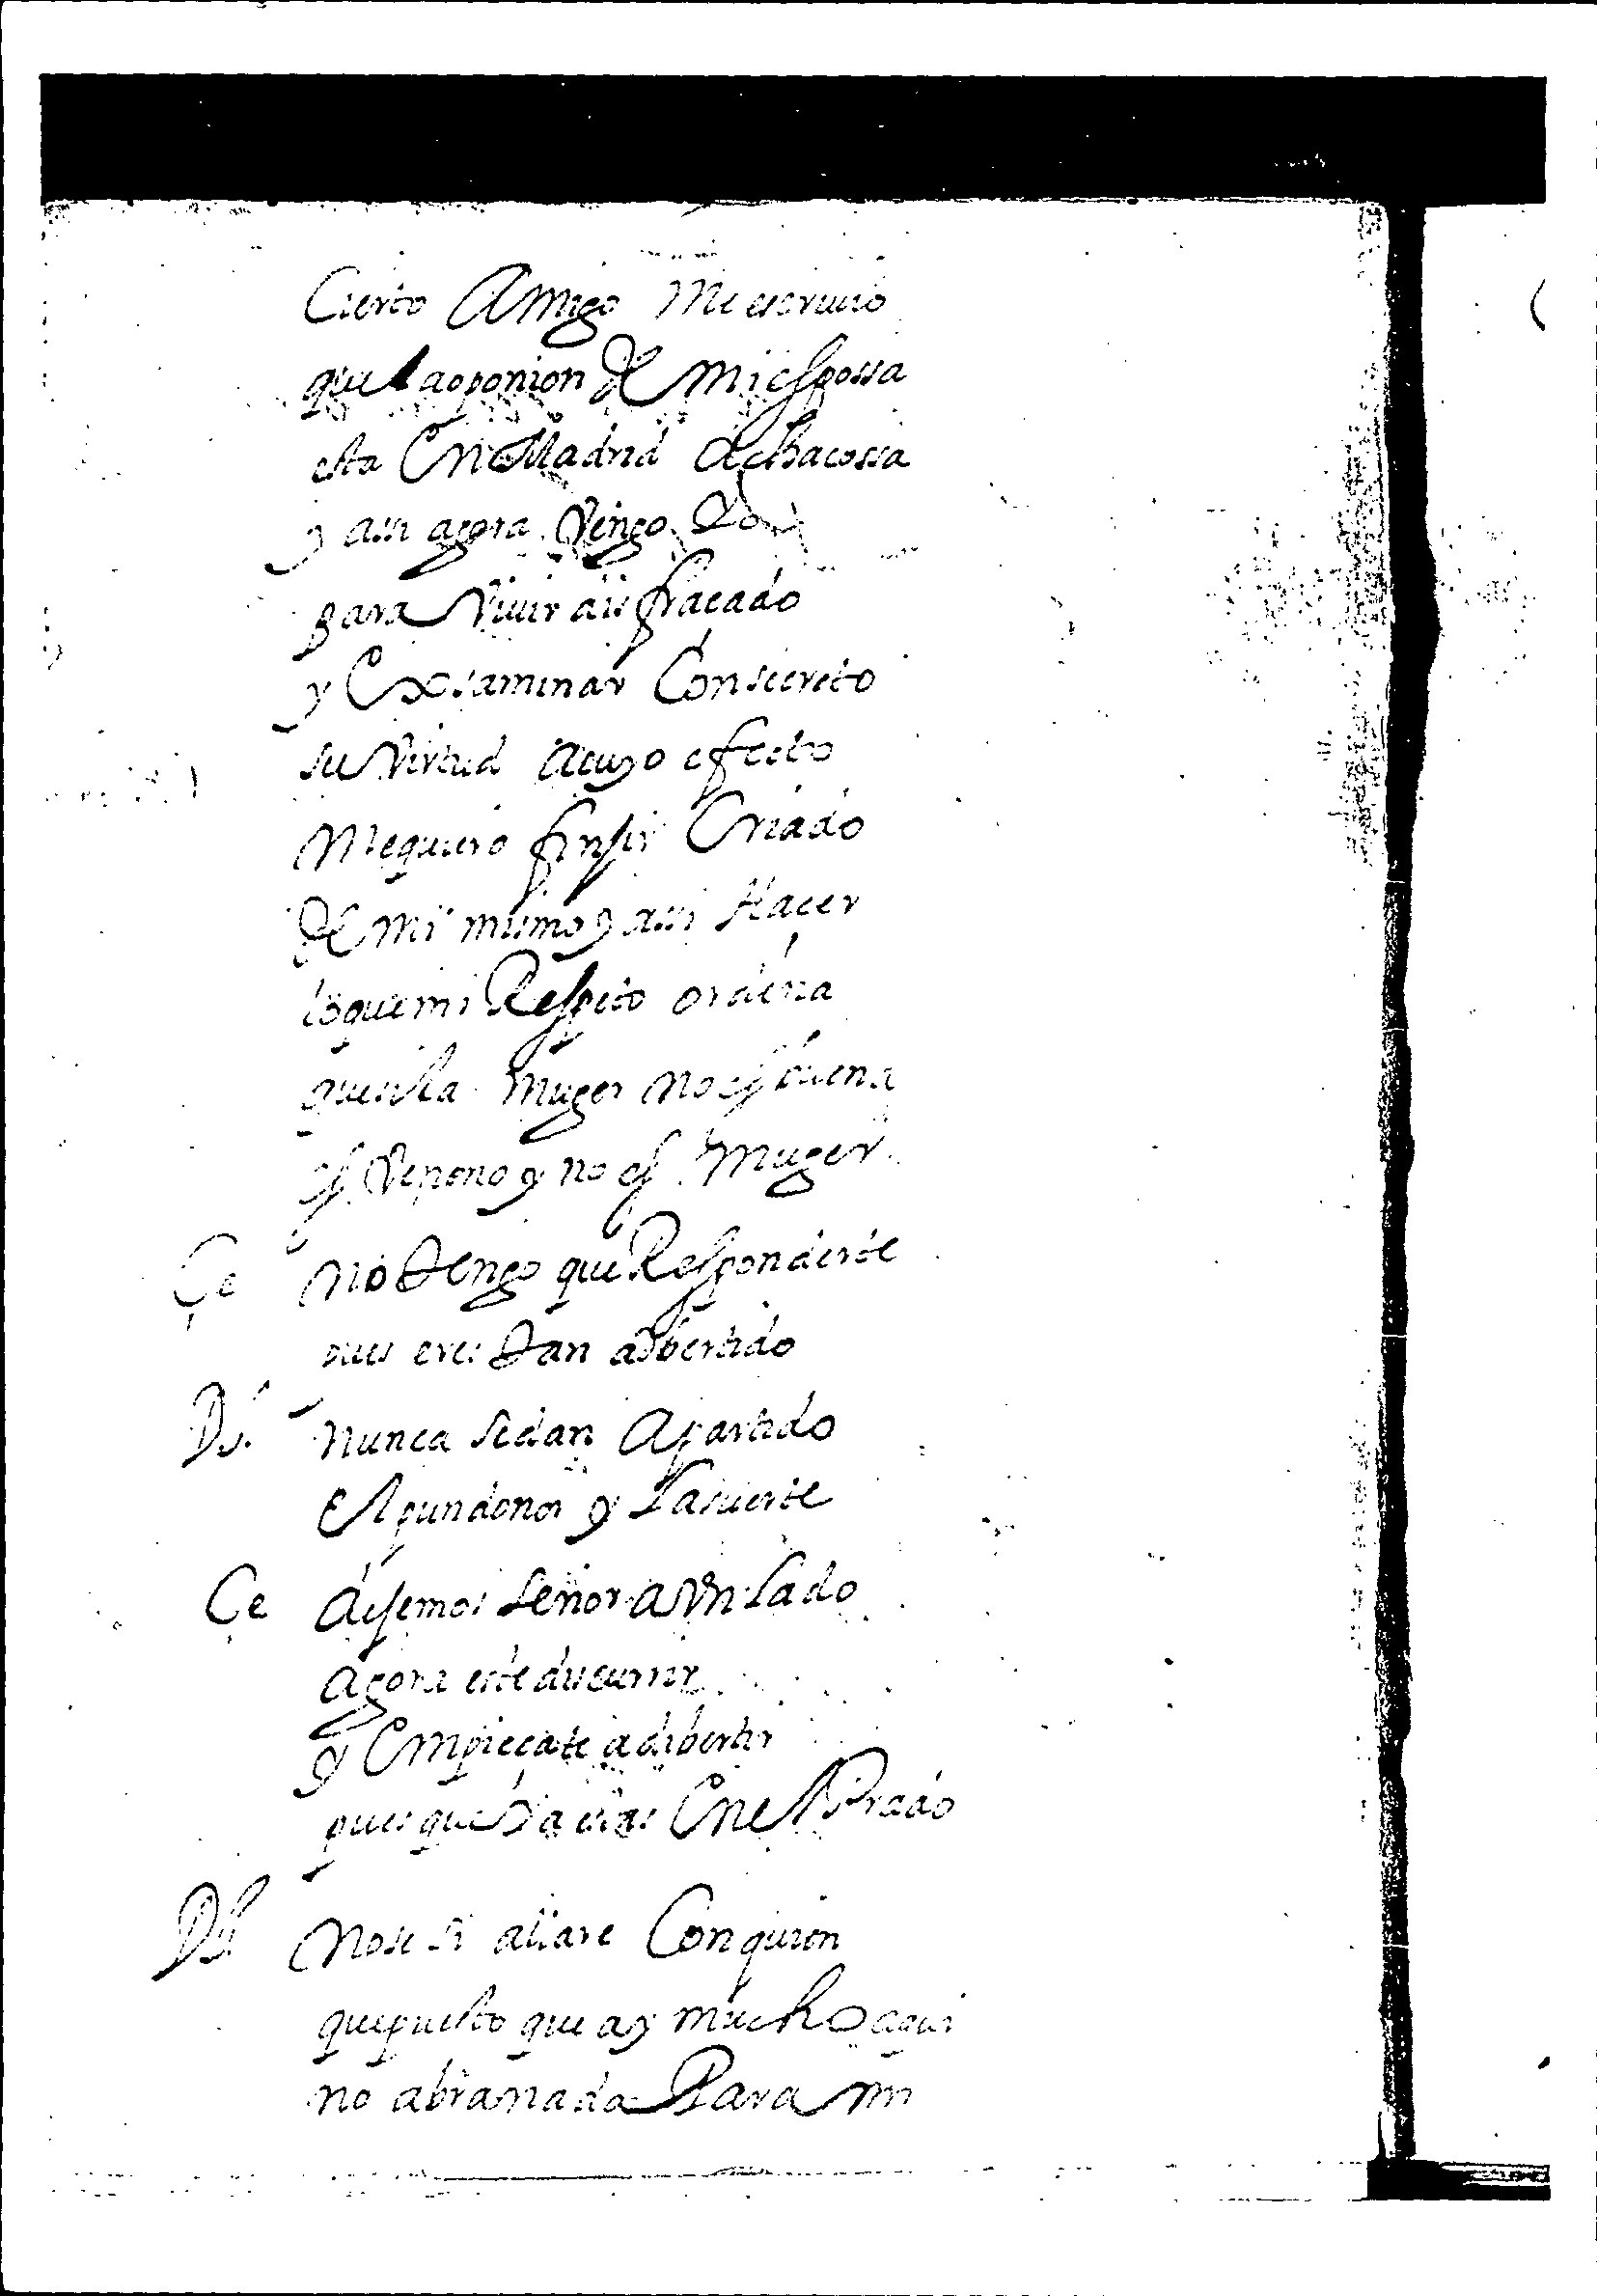 Cierto Amigo Me escriuio
que la oponion de mi esposa
esta En Madrid Achacossa
y assi agora Vengo Yo
para Viuir disfraçado
y Exsaminar Con secreto
su Virtud a cuyo efecto
Me quiero finjir Criado
De mi mismo y assi Hacer
lo que mi Respeto ordena
que si la Muger no es buena
es Veneno y no es Muger
Ce No Tengo que Responderte
pues eres Tan adbertido
Di. Nunca se dan A partido
El pundonor y La suerte
Ce dejemos señor a Vn Lado
Agora este discurrir
y Empieçate a dibertir
pues que Ya estas En el Prado
Di No se si allare Con quien
que puesto que ay mucho aqui
no abra nada Para mi